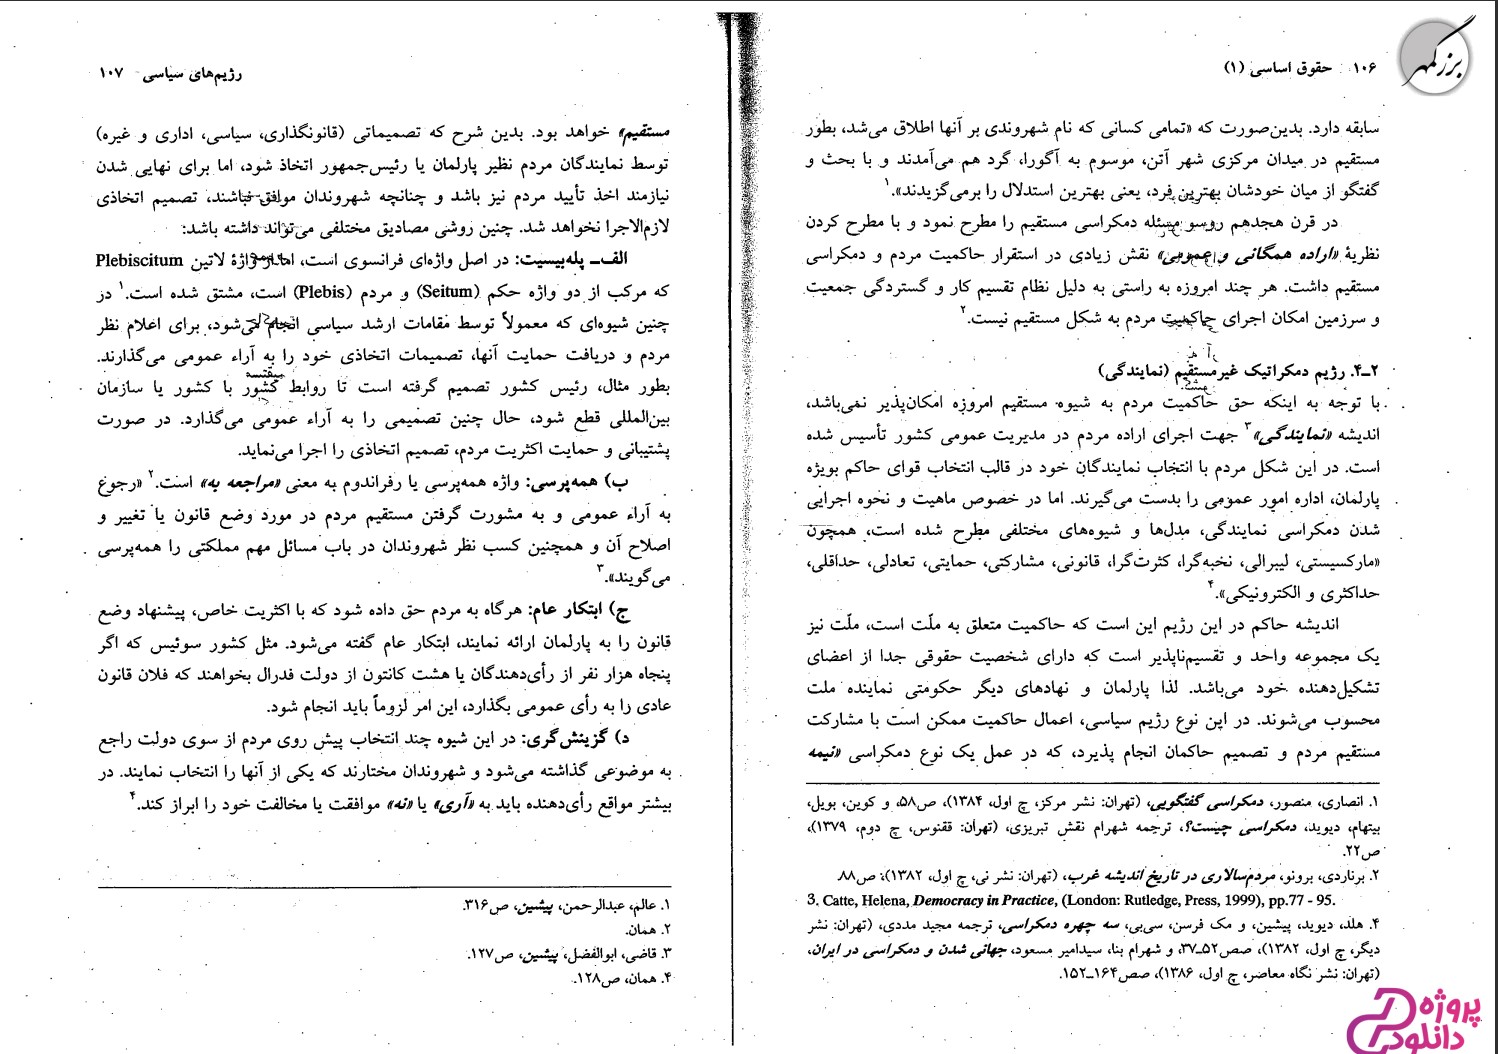 بزرگمهر
۱۰۶ حقوق اساسی (۱)
سابقه دارد. بدین‌صورت که «تمامی کسانی که نام شهروندی بر آنها اطلاق می‌شد، بطور
مستقیم در میدان مرکزی شهر آتن، موسوم به آگورا، گرد هم می‌آمدند و با بحث و
گفتگو از میان خودشان بهترین فرد، یعنی بهترین استدلال را برمی‌گزیدند».۱
در قرن هجدهم روسو مسئله دمکراسی مستقیم را مطرح نمود و با مطرح کردن
نظریهٔ «اراده همگانی و عمومی» نقش زیادی در استقرار حاکمیت مردم و دمکراسی
مستقیم داشت. هر چند امروزه به راستی به دلیل نظام تقسیم کار و گستردگی جمعیت
و سرزمین امکان اجرای حاکمیت مردم به شکل مستقیم نیست.۲
۲ـ۴. رژیم دمکراتیک غیرمستقیم (نمایندگی)
با توجه به اینکه حق حاکمیت مردم به شیوه مستقیم امروزه امکان‌پذیر نمی‌باشد،
اندیشه «نمایندگی»۳ جهت اجرای اراده مردم در مدیریت عمومی کشور تأسیس شده
است. در این شکل مردم با انتخاب نمایندگان خود در قالب انتخاب قوای حاکم بویژه
پارلمان، اداره امور عمومی را بدست می‌گیرند. اما در خصوص ماهیت و نحوه اجرایی
شدن دمکراسی نمایندگی، مدل‌ها و شیوه‌های مختلفی مطرح شده است، همچون
«مارکسیستی، لیبرالی، نخبه‌گرا، کثرت‌گرا، قانونی، مشارکتی، حمایتی، تعادلی، حداقلی،
حداکثری و الکترونیکی».۴
اندیشه حاکم در این رژیم این است که حاکمیت متعلق به ملّت است، ملّت نیز
یک مجموعه واحد و تقسیم‌ناپذیر است که دارای شخصیت حقوقی جدا از اعضای
تشکیل‌دهنده خود می‌باشد. لذا پارلمان و نهادهای دیگر حکومتی نماینده ملت
محسوب می‌شوند. در این نوع رژیم سیاسی، اعمال حاکمیت ممکن است با مشارکت
مستقیم مردم و تصمیم حاکمان انجام پذیرد، که در عمل یک نوع دمکراسی «نیمه
۱. انصاری، منصور، دمکراسی گفتگویی، (تهران: نشر مرکز، چ اول، ۱۳۸۴)، ص۵۸، و کوین، بویل،
بیتهام، دیوید، دمکراسی چیست؟، ترجمه شهرام نقش تبریزی، (تهران: ققنوس، چ دوم، ۱۳۷۹)،
ص۲۲.
۲. برناردی، برونو، مردم‌سالاری در تاریخ اندیشه غرب، (تهران: نشر نی، چ اول، ۱۳۸۲)، ص۸۸.
3. Catte, Helena, Democracy in Practice, (London: Rutledge, Press, 1999), pp.77 - 95.
۴. هلد، دیوید، پیشین، و مک فرسن، سی‌بی، سه چهره دمکراسی، ترجمه مجید مددی، (تهران: نشر
دیگر، چ اول، ۱۳۸۲)، صص۵۲ـ۳۷، و شهرام بنا، سیدامیر مسعود، جهانی شدن و دمکراسی در ایران،
(تهران: نشر نگاه معاصر، چ اول، ۱۳۸۶)، صص۱۶۴ـ۱۵۲.
رژیم‌های سیاسی ۱۰۷
مستقیم» خواهد بود. بدین شرح که تصمیماتی (قانونگذاری، سیاسی، اداری و غیره)
توسط نمایندگان مردم نظیر پارلمان یا رئیس‌جمهور اتخاذ شود، اما برای نهایی شدن
نیازمند اخذ تأیید مردم نیز باشد و چنانچه شهروندان موافق نباشند، تصمیم اتخاذی
لازم‌الاجرا نخواهد شد. چنین روشی مصادیق مختلفی می‌تواند داشته باشد:
الف ـ پله‌بیسیت: در اصل واژه‌ای فرانسوی است، اما از واژهٔ لاتین Plebiscitum
که مرکب از دو واژه حکم (Seitum) و مردم (Plebis) است، مشتق شده است.۱ در
چنین شیوه‌ای که معمولاً توسط مقامات ارشد سیاسی انجام می‌شود، برای اعلام نظر
مردم و دریافت حمایت آنها، تصمیمات اتخاذی خود را به آراء عمومی می‌گذارند.
بطور مثال، رئیس کشور تصمیم گرفته است تا روابط کشور با کشور یا سازمان
بین‌المللی قطع شود، حال چنین تصمیمی را به آراء عمومی می‌گذارد. در صورت
پشتیبانی و حمایت اکثریت مردم، تصمیم اتخاذی را اجرا می‌نماید.
ب) همه‌پرسی: واژه همه‌پرسی یا رفراندوم به معنی «مراجعه به» است.۲ «رجوع
به آراء عمومی و به مشورت گرفتن مستقیم مردم در مورد وضع قانون یا تغییر و
اصلاح آن و همچنین کسب نظر شهروندان در باب مسائل مهم مملکتی را همه‌پرسی
می‌گویند».۳
ج) ابتکار عام: هرگاه به مردم حق داده شود که با اکثریت خاص، پیشنهاد وضع
قانون را به پارلمان ارائه نمایند، ابتکار عام گفته می‌شود. مثل کشور سوئیس که اگر
پنجاه هزار نفر از رأی‌دهندگان یا هشت کانتون از دولت فدرال بخواهند که فلان قانون
عادی را به رأی عمومی بگذارد، این امر لزوماً باید انجام شود.
د) گزینش‌گری: در این شیوه چند انتخاب پیش روی مردم از سوی دولت راجع
به موضوعی گذاشته می‌شود و شهروندان مختارند که یکی از آنها را انتخاب نمایند. در
بیشتر مواقع رأی‌دهنده باید به «آری» یا «نه» موافقت یا مخالفت خود را ابراز کند.۴
۱. عالم، عبدالرحمن، پیشین، ص۳۱۶.
۲. همان.
۳. قاضی، ابوالفضل، پیشین، ص۱۲۷.
۴. همان، ص۱۲۸.
پروژه
دانلود